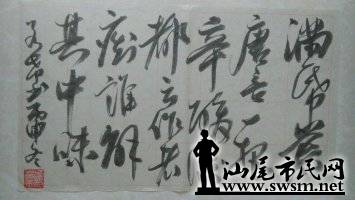 满纸荒
唐言一把
辛酸
都云作者
痴谁解
其中味
丙申冬
汕尾市民网
www.swsm.net